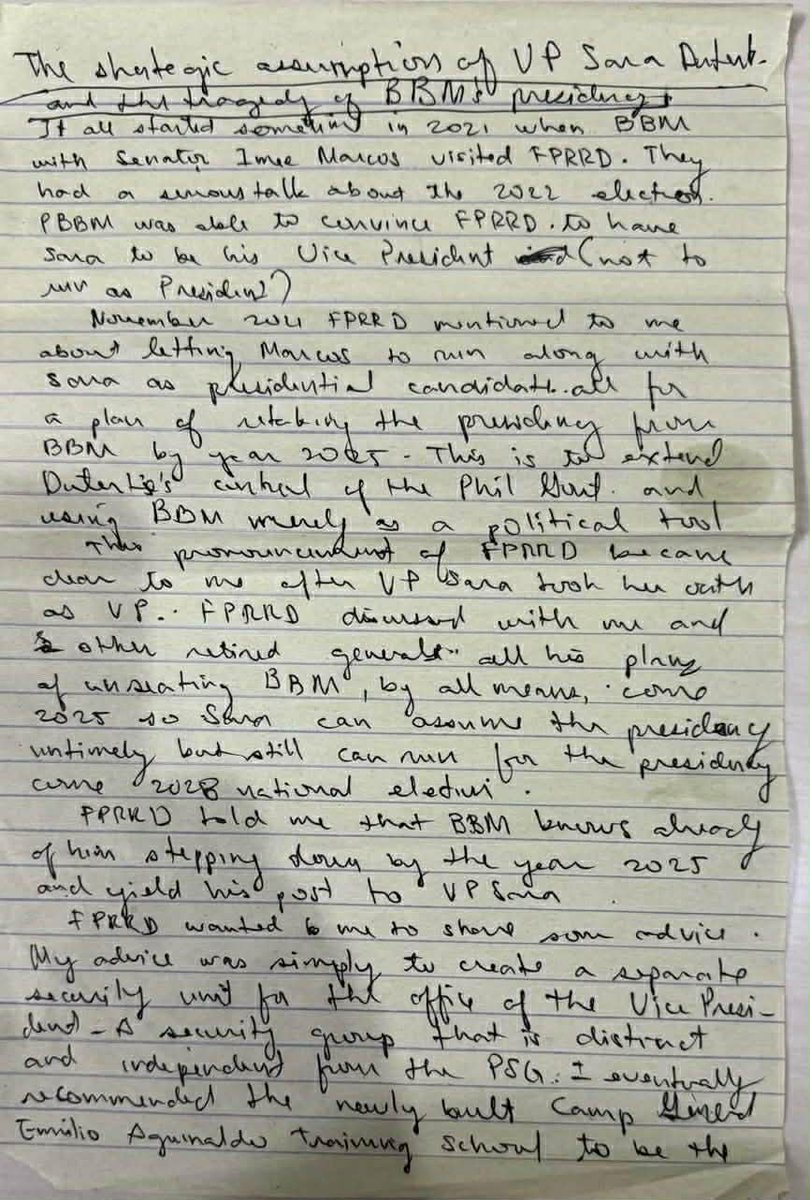 The strategic assumption of VP Sara Dutert-
and the tragedy of BBM's presidency.
It all started sometime in 2021 when BBM
with Senator Imee Marcos visited FPRRD. They
had a serious talk about the 2022 election.
PBBM was able to convince FPRRD. to have
Sara to be his Vice President (not to
run as President)
November 2021 FPRRD mentioned to me
about letting Marcos to run along with
Sara as presidential candidate..all for
a plan of retaking the presidency from
BBM by year 2025. This is to extend
Duterte's control of the Phil Govt. and
using BBM merely as a political tool
This pronouncement of FPRRD became
clear to me after VP Sara took her oath
as VP.. FPRRD discussed with me and
other retired generals.. all his plans
of unseating BBM, by all means, come
2025 so Sara can assume the presidency
untimely but still can run for the presidency
come 2028 national election.
FPRRD told me that BBM knows already
of him stepping down by the year 2025
and yield his post to VP Sara
FPRRD wanted me to share some advice.
My advice was simply to create a separate
security unit for the office of the Vice Presi-
dent - A security group that is distinct
and independent from the PSG. I eventually
recommended the newly built Camp General
Emilio Aguinaldo training school to be the